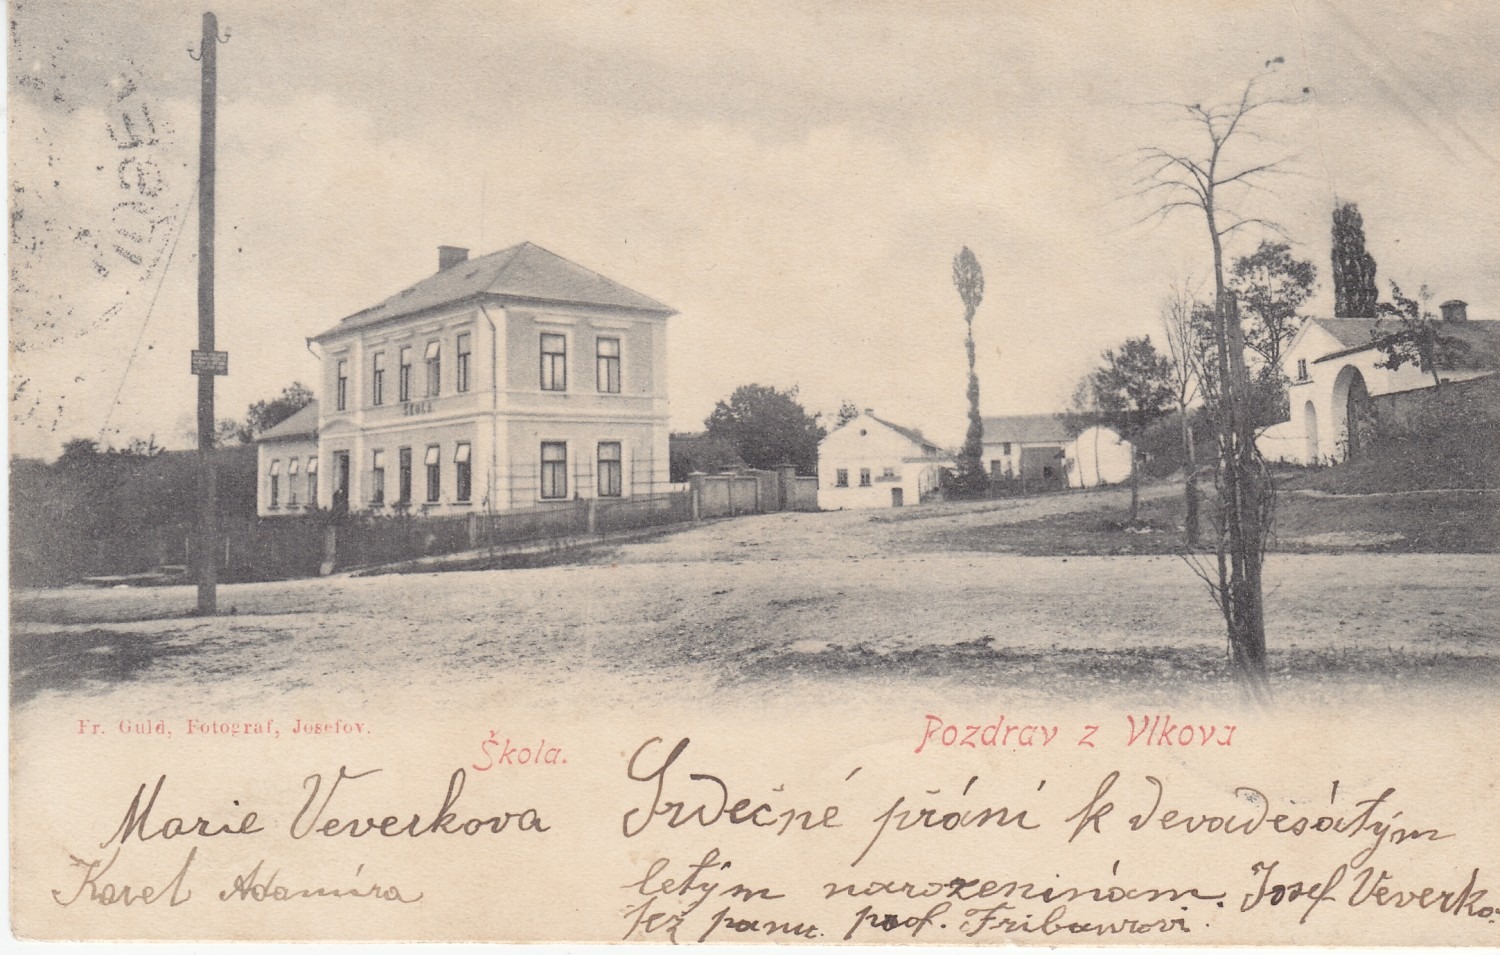 ŠKOLA
Fr. Guld, Fotograf, Josefov.
Škola.
Pozdrav z Vlkova
Marie Veverkova
Karel Adamíra
Srdečné přání k devadesátým
letým narozeninám. Josef Veverka.
též panu. prof.